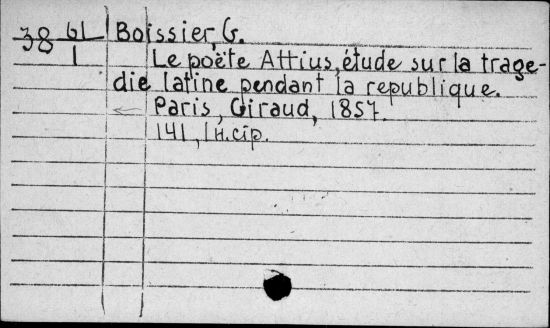 38 61 Boissier, G.
1 Le poëte Attius, étude sur la trage-
die latine pendant la republique.
Paris, Giraud, 1857.
141, 1 н.стр.